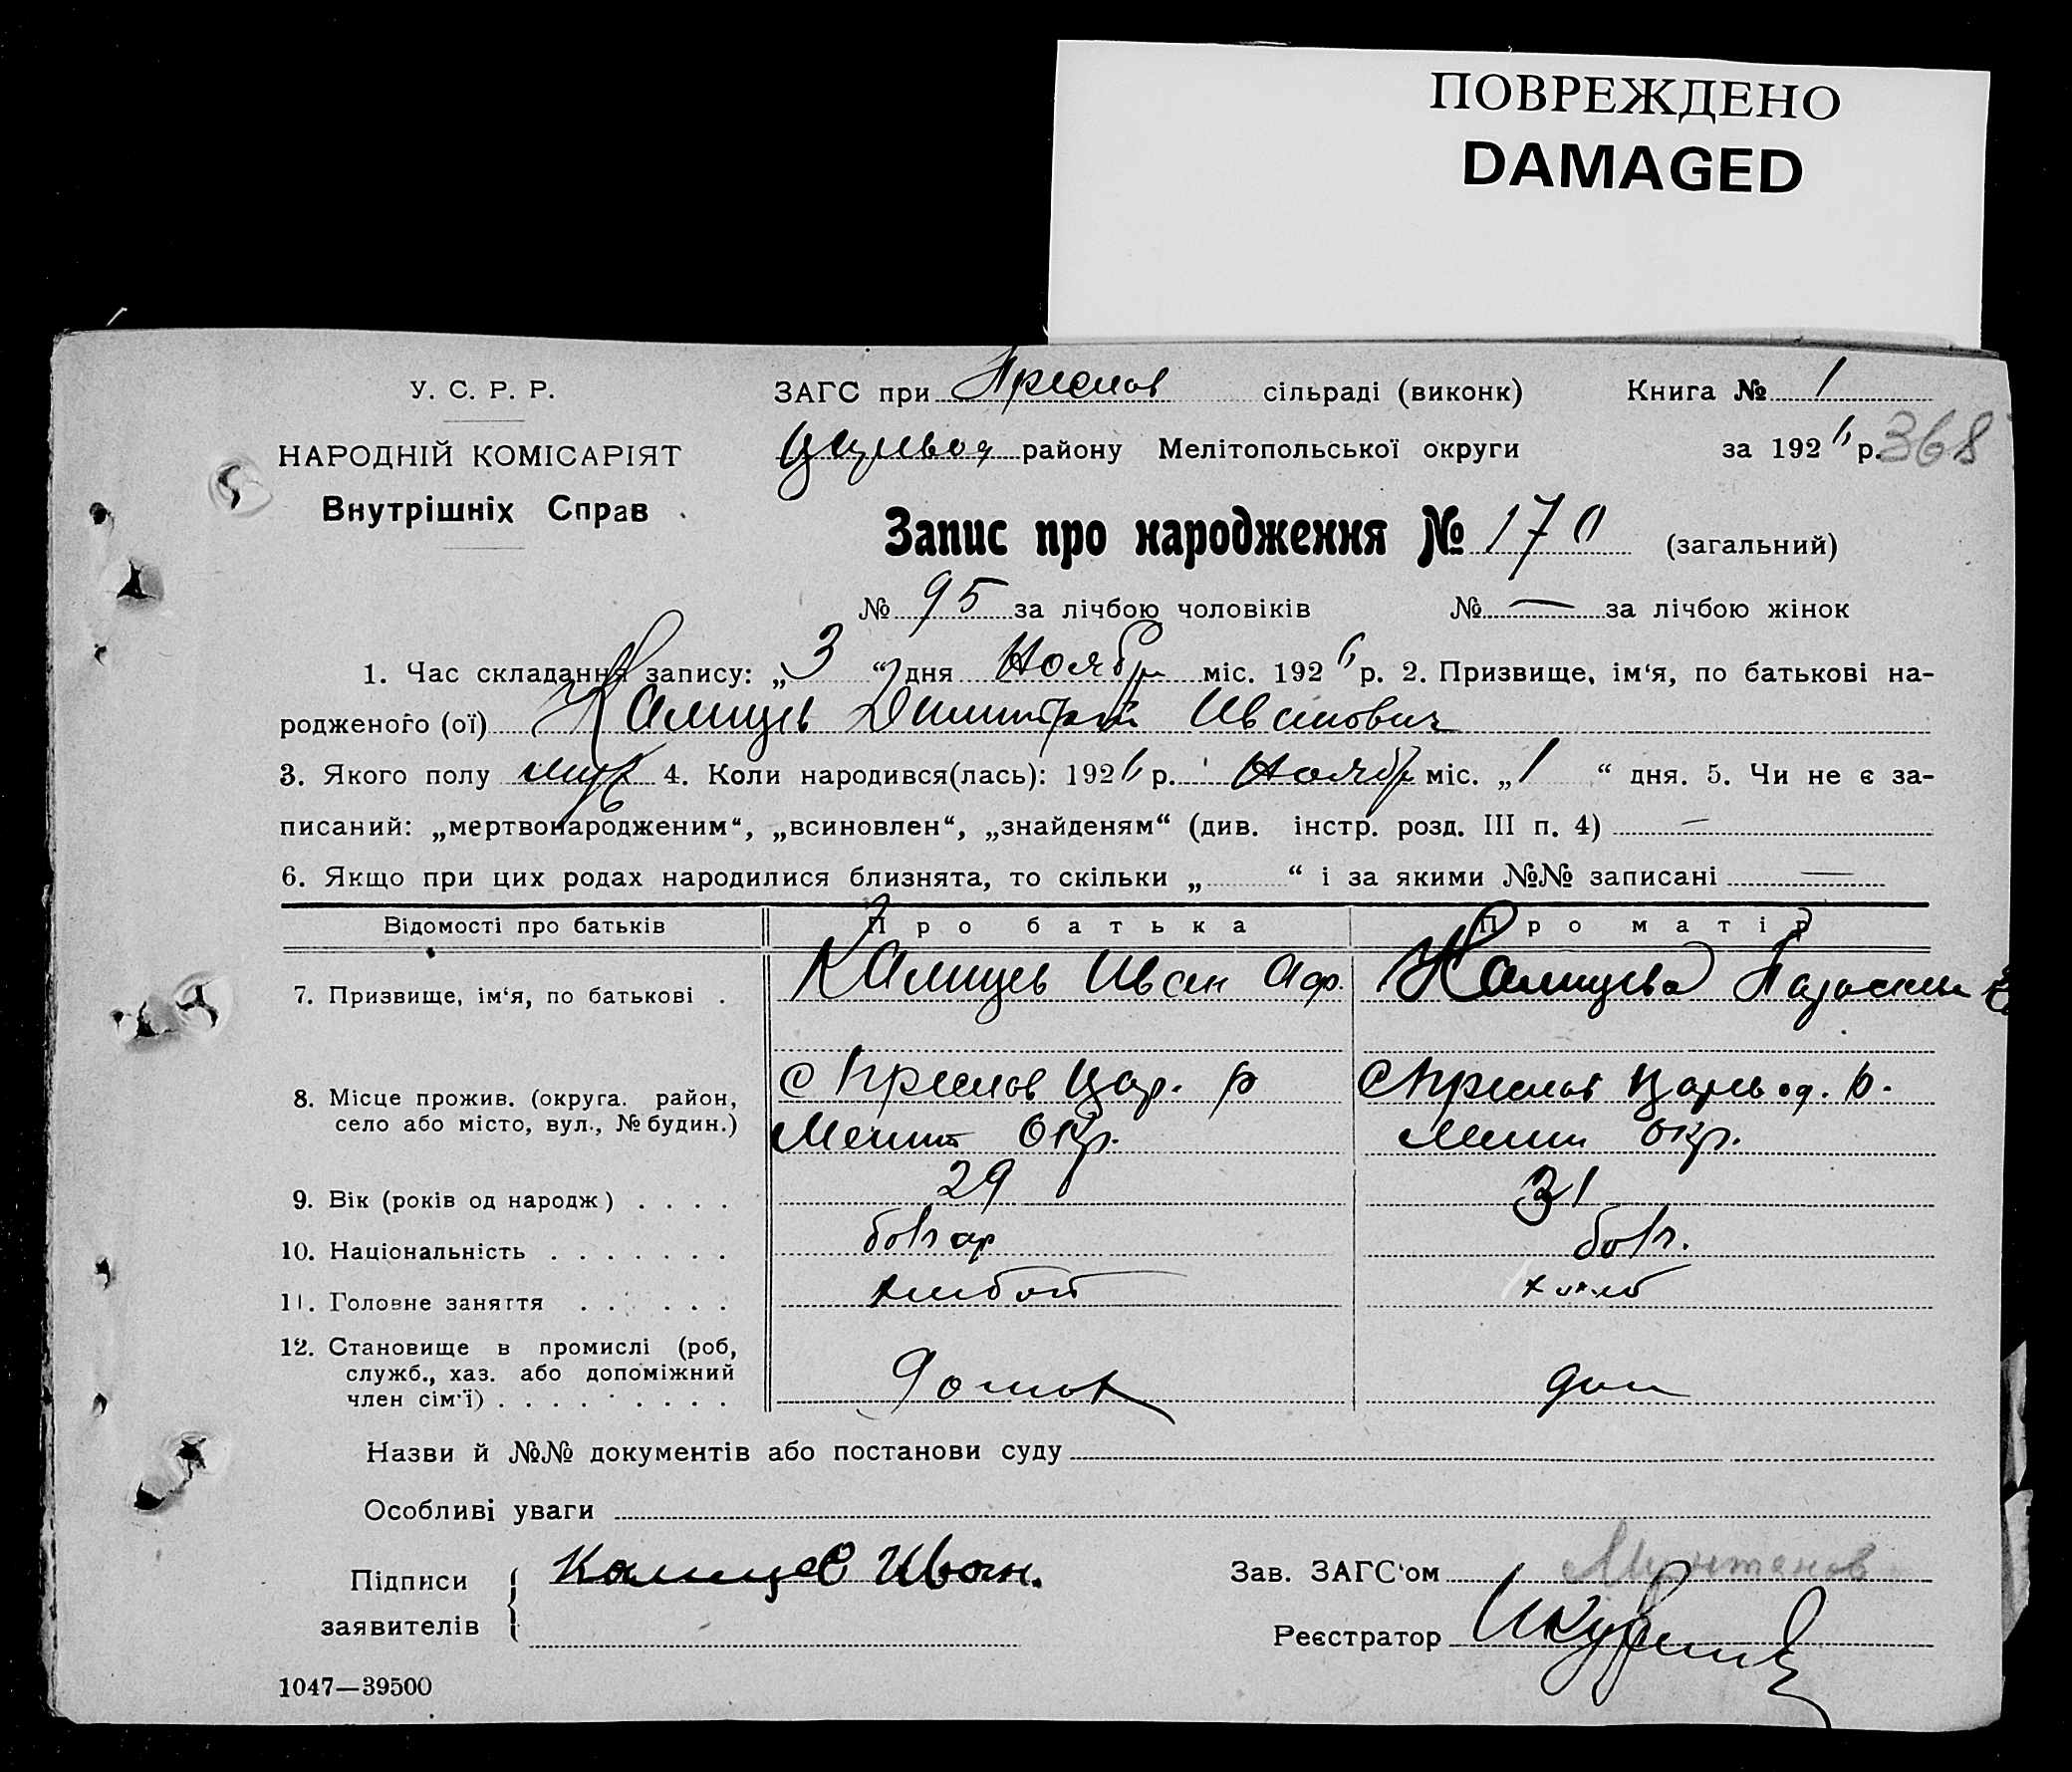 ПОВРЕЖДЕНО
DAMAGED
У. С. Р. Р.
НАРОДНІЙ КОМІСАРІЯТ
Внутрішніх Справ
ЗАГС при Преслав сільраді (виконк) Книга № 1
району Мелітопольської округи за 1926 р. 368
Запис про народження № 170 (загальний)
№ 95 за лічбою чоловіків № — за лічбою жінок
1. Час складання запису: „3“ дня Ноябр міс. 1926 р. 2. Призвище, ім‘я, по батькові на-
родженого (ої) Калищев Димитрий Иванович
3. Якого полу муж 4. Коли народився(лась): 1926 р. Ноябр міс. „1“ дня. 5. Чи не є за-
писаний: „мертвонародженим“, „всиновлен“, „знайденям“ (див. інстр. розд. III п. 4) —
6. Якщо при цих родах народилися близнята, то скільки „ “ і за якими №№ записані —
Відомості про батьків Про батька Про матір
7. Призвище, ім‘я, по батькові . Калищев Иван Аф. Калищева
8. Місце прожив. (округа. район, с Преслав Цар. р с Преслав Царевод. р.
село або місто, вул., № будин.) Мелит Окр. Мелит окр.
9. Вік (років од народж) . . . . 29 31
10. Національність . . . . . . . болгар болг.
11. Головне заняття . . . . . . хлебоп хлеб
12. Становище в промислі (роб,
служб., хаз. або допоміжний
член сім‘ї) . . . . . . . . . домох дом
Назви й №№ документів або постанови суду
Особливі уваги
Підписи
заявителів
Калищев Иван.
Зав. ЗАГС‘ом Мунтанов
Реєстратор
1047—39500